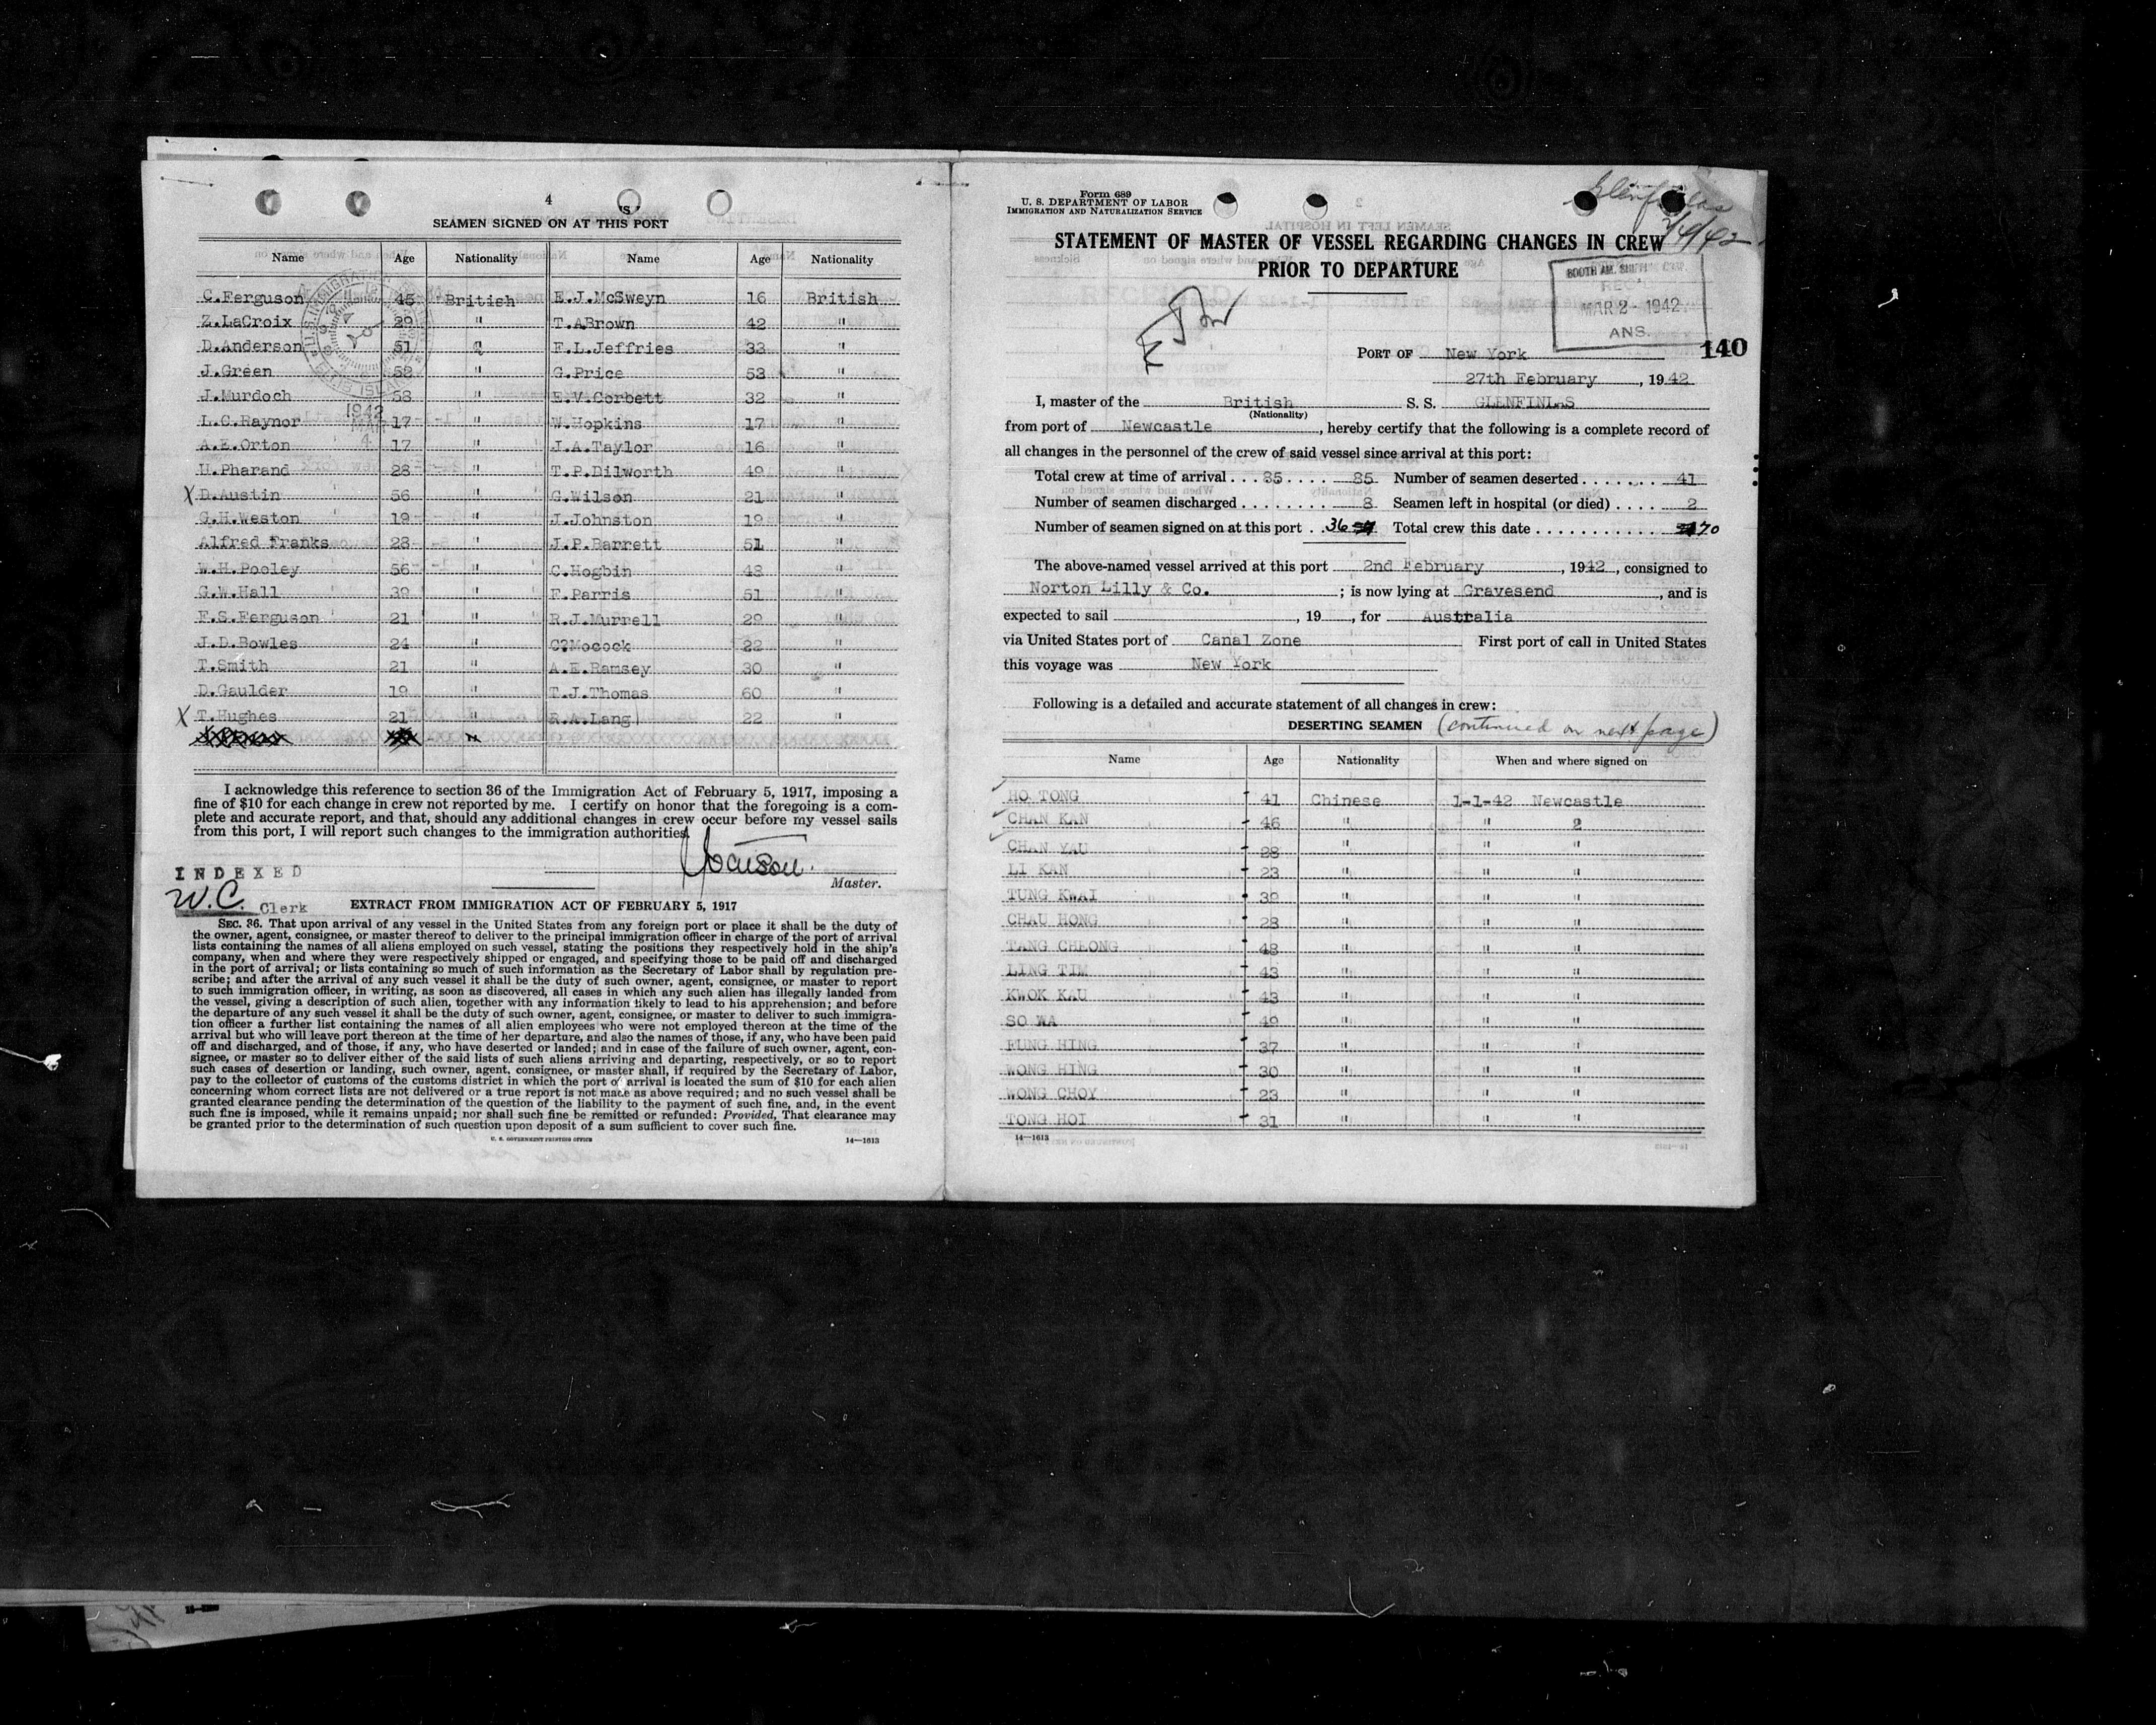 4
"S"
SEAMEN SIGNED ON AT THIS PORT
Name Age Nationality Name Age Nationality
C.Ferguson 45 British E.J.McSweyn 16 British
Z.LaCroix 29 " T.ABrown 42 "
D.Anderson 51 " F.L.Jeffries 33 "
J.Green 52 " G.Price 53 "
J.Murdoch 58 " E.V.Corbett 32 "
L.C.Raynor 17 " W.Hopkins 17 "
A.E.Orton 17 " J.A.Taylor 16 "
U.Pharand 28 " T.P.Dilworth 49 "
X D.Austin 56 " G.Wilson 21 "
G.H.Weston 19 " J.Johnston 19 "
Alfred Franks 28 " J.P.Barrett 51 "
W.H.Pooley 56 " C.Hogbin 48 "
G.W.Hall 39 " F.Parris 51 "
F.S.Ferguson 21 " R.J.Murrell 29 "
J.D.Bowles 24 " C?Mocock 22 "
T.Smith 21 " A.E.Ramsey 30 "
D.Gaulder 19 " T.J.Thomas 60 "
X T.Hughes 21 " R.A.Lang 22 "
1942
4
I acknowledge this reference to section 36 of the Immigration Act of February 5, 1917, imposing a
fine of $10 for each change in crew not reported by me. I certify on honor that the foregoing is a com-
plete and accurate report, and that, should any additional changes in crew occur before my vessel sails
from this port, I will report such changes to the immigration authorities.
Master.
INDEXED
W.C. Clerk
EXTRACT FROM IMMIGRATION ACT OF FEBRUARY 5, 1917
SEC. 36. That upon arrival of any vessel in the United States from any foreign port or place it shall be the duty of
the owner, agent, consignee, or master thereof to deliver to the principal immigration officer in charge of the port of arrival
lists containing the names of all aliens employed on such vessel, stating the positions they respectively hold in the ship's
company, when and where they were respectively shipped or engaged, and specifying those to be paid off and discharged
in the port of arrival; or lists containing so much of such information as the Secretary of Labor shall by regulation pre-
scribe; and after the arrival of any such vessel it shall be the duty of such owner, agent, consignee, or master to report
to such immigration officer, in writing, as soon as discovered, all cases in which any such alien has illegally landed from
the vessel, giving a description of such alien, together with any information likely to lead to his apprehension; and before
the departure of any such vessel it shall be the duty of such owner, agent, consignee, or master to deliver to such immigra-
tion officer a further list containing the names of all alien employees who were not employed thereon at the time of the
arrival but who will leave port thereon at the time of her departure, and also the names of those, if any, who have been paid
off and discharged, and of those, if any, who have deserted or landed; and in case of the failure of such owner, agent, con-
signee, or master so to deliver either of the said lists of such aliens arriving and departing, respectively, or so to report
such cases of desertion or landing, such owner, agent, consignee, or master shall, if required by the Secretary of Labor,
pay to the collector of customs of the customs district in which the port of arrival is located the sum of $10 for each alien
concerning whom correct lists are not delivered or a true report is not made as above required; and no such vessel shall be
granted clearance pending the determination of the question of the liability to the payment of such fine, and, in the event
such fine is imposed, while it remains unpaid; nor shall such fine be remitted or refunded: Provided, That clearance may
be granted prior to the determination of such question upon deposit of a sum sufficient to cover such fine.
U. S. GOVERNMENT PRINTING OFFICE 14—1613
Form 689
U. S. DEPARTMENT OF LABOR
IMMIGRATION AND NATURALIZATION SERVICE
Glenfinlas
STATEMENT OF MASTER OF VESSEL REGARDING CHANGES IN CREW
PRIOR TO DEPARTURE
BOOTH AM. SHIPPING CORP.
REC'
MAR 2 - 1942
ANS.
140
PORT OF New York
27th February, 1942
I, master of the British S. S. GLENFINLAS
(Nationality)
from port of Newcastle, hereby certify that the following is a complete record of
all changes in the personnel of the crew of said vessel since arrival at this port:
Total crew at time of arrival . . . 85 . . . . . 85 Number of seamen deserted . . . . . . . 41
Number of seamen discharged . . . . . . . . 8 Seamen left in hospital (or died) . . . . 2
Number of seamen signed on at this port . . 36 Total crew this date . . . . . . . . . . . . 70
The above-named vessel arrived at this port 2nd February, 1942, consigned to
Norton Lilly & Co. ; is now lying at Gravesend, and is
expected to sail , 19 , for Australia
via United States port of Canal Zone First port of call in United States
this voyage was New York
Following is a detailed and accurate statement of all changes in crew:
DESERTING SEAMEN (continued on next page)
Name Age Nationality When and where signed on
HO TONG 41 Chinese 1-1-42 Newcastle
CHAN KAN 46 " " "
CHAN YAU 28 " " "
LI KAN 23 " " "
TUNG KWAI 39 " " "
CHAU HONG 28 " " "
TANG CHEONG 48 " " "
LING TIM 43 " " "
KWOK KAU 43 " " "
SO WA 49 " " "
FUNG HING 37 " " "
WONG HING 30 " " "
WONG CHOY 23 " " "
TONG HOI 31 " " "
14—1613